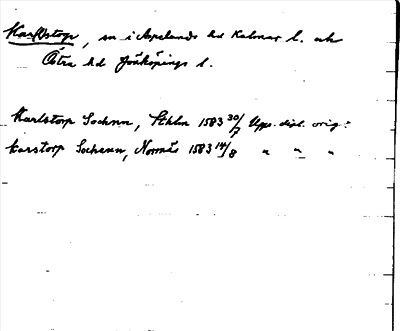 Karlstorp, sn i Aspelands hd Kalmar l. och
Östra hd Jönköpings l.
Karlstorp Sochnn, Sthlm 1583 30/7 Upps. dipl. orig:
Karstorp Sochenn, Norrnäs 1583 14/8 " " "